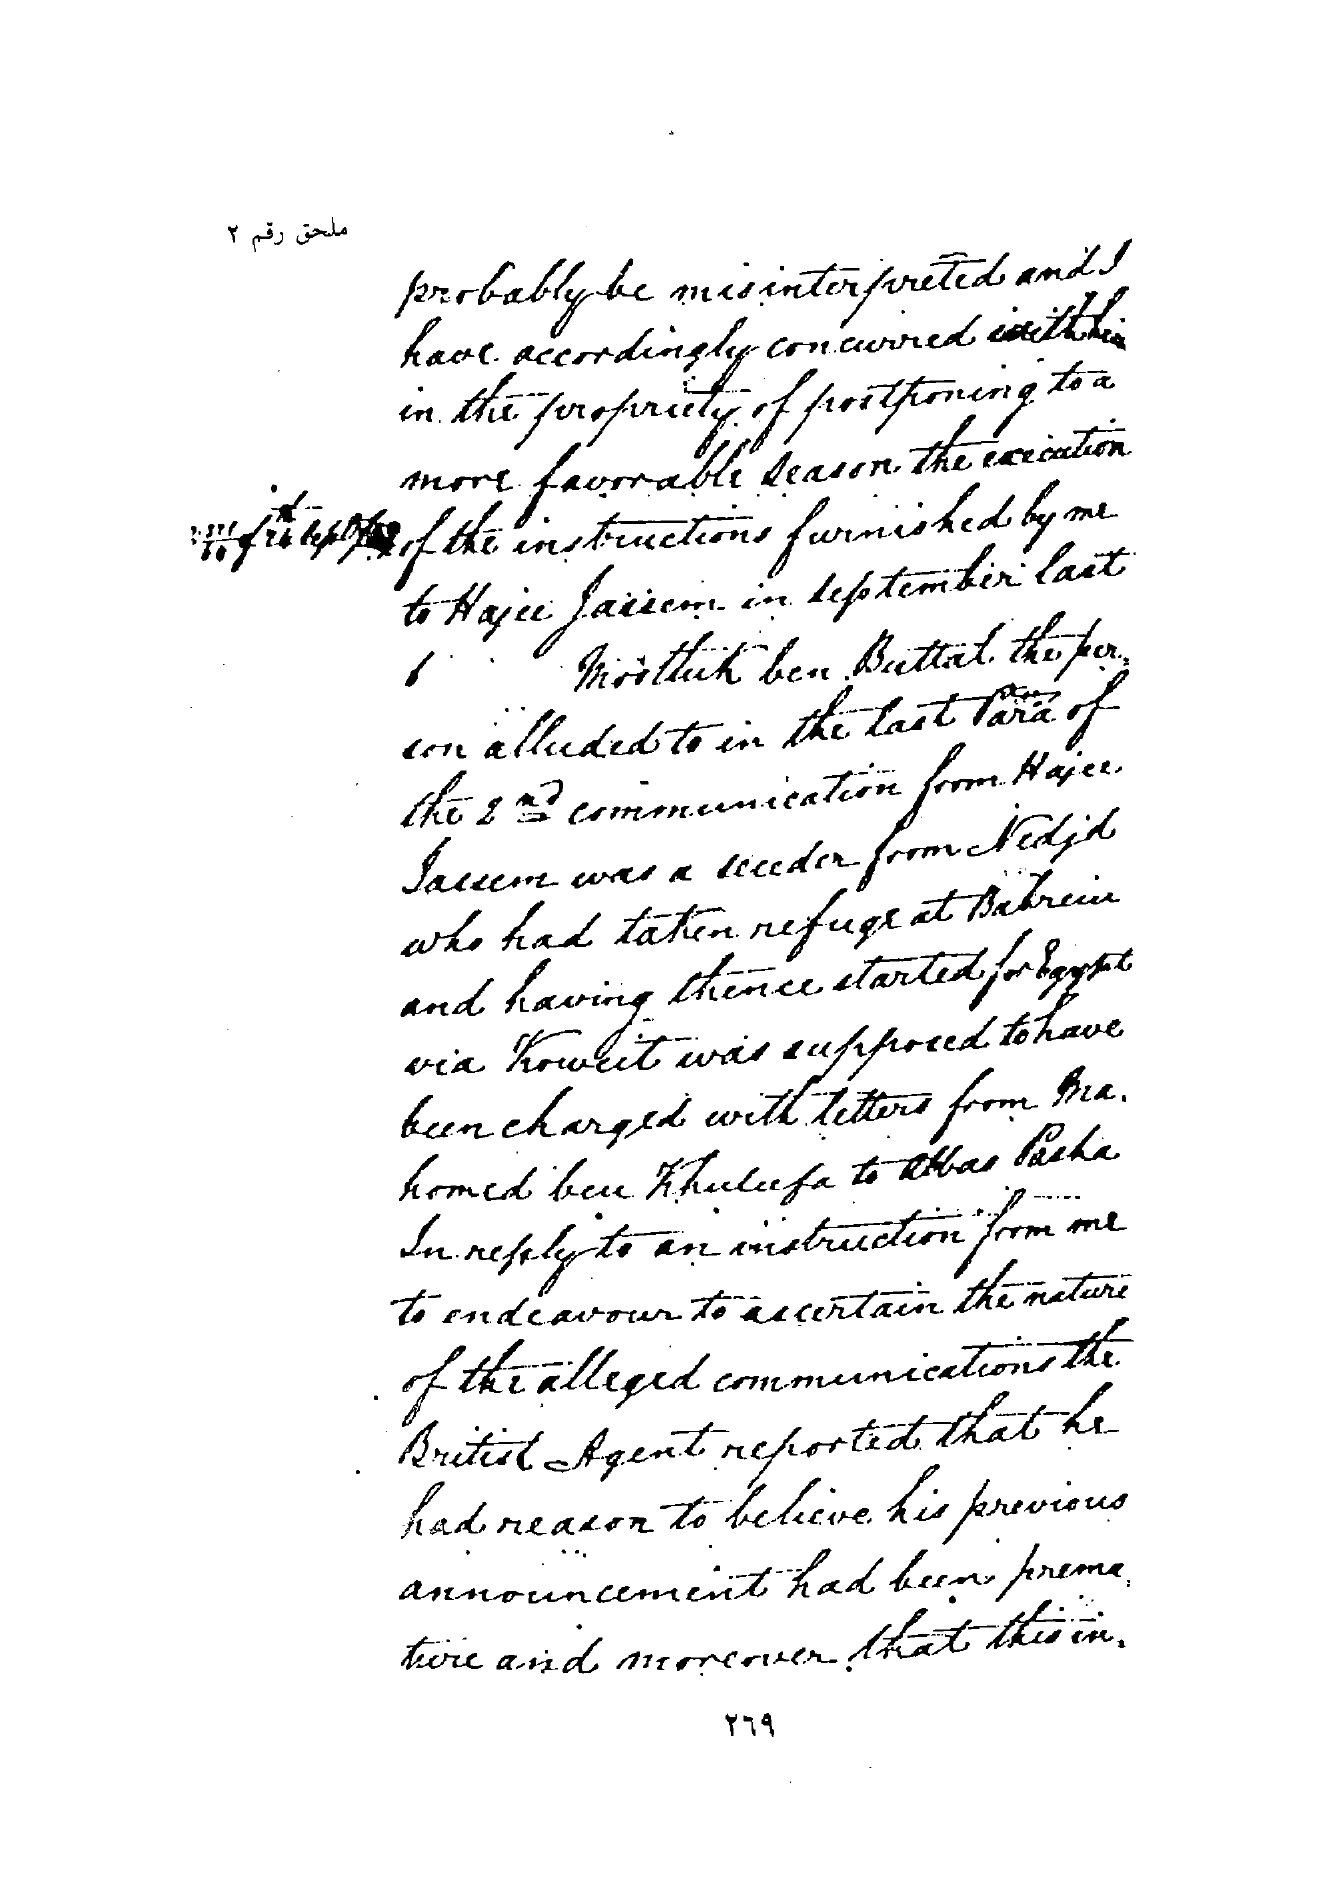 ملحق رقم ٢
probably be misinterpreted and I
have accordingly concurred with him
in the propriety of postponing to a
more favorable season the execution
of the instructions furnished by me
to Hajee Jassem in September last
6 Mostluk ben Buttal the per-
son alluded to in the last Para of
the 2nd communication from Hajee
Jassem was a seceder from Nedjd
who had taken refuge at Bahrein
and having thence started for Egypt
via Koweit was supposed to have
been charged with letters from Ma-
homed ben Khuleefa to Abbas Pasha
In reply to an instruction from me
to endeavour to ascertain the nature
of the alleged communications the
British Agent reported that he
had reason to believe his previous
announcement had been prema-
ture and moreover that this in-
٢٦٩